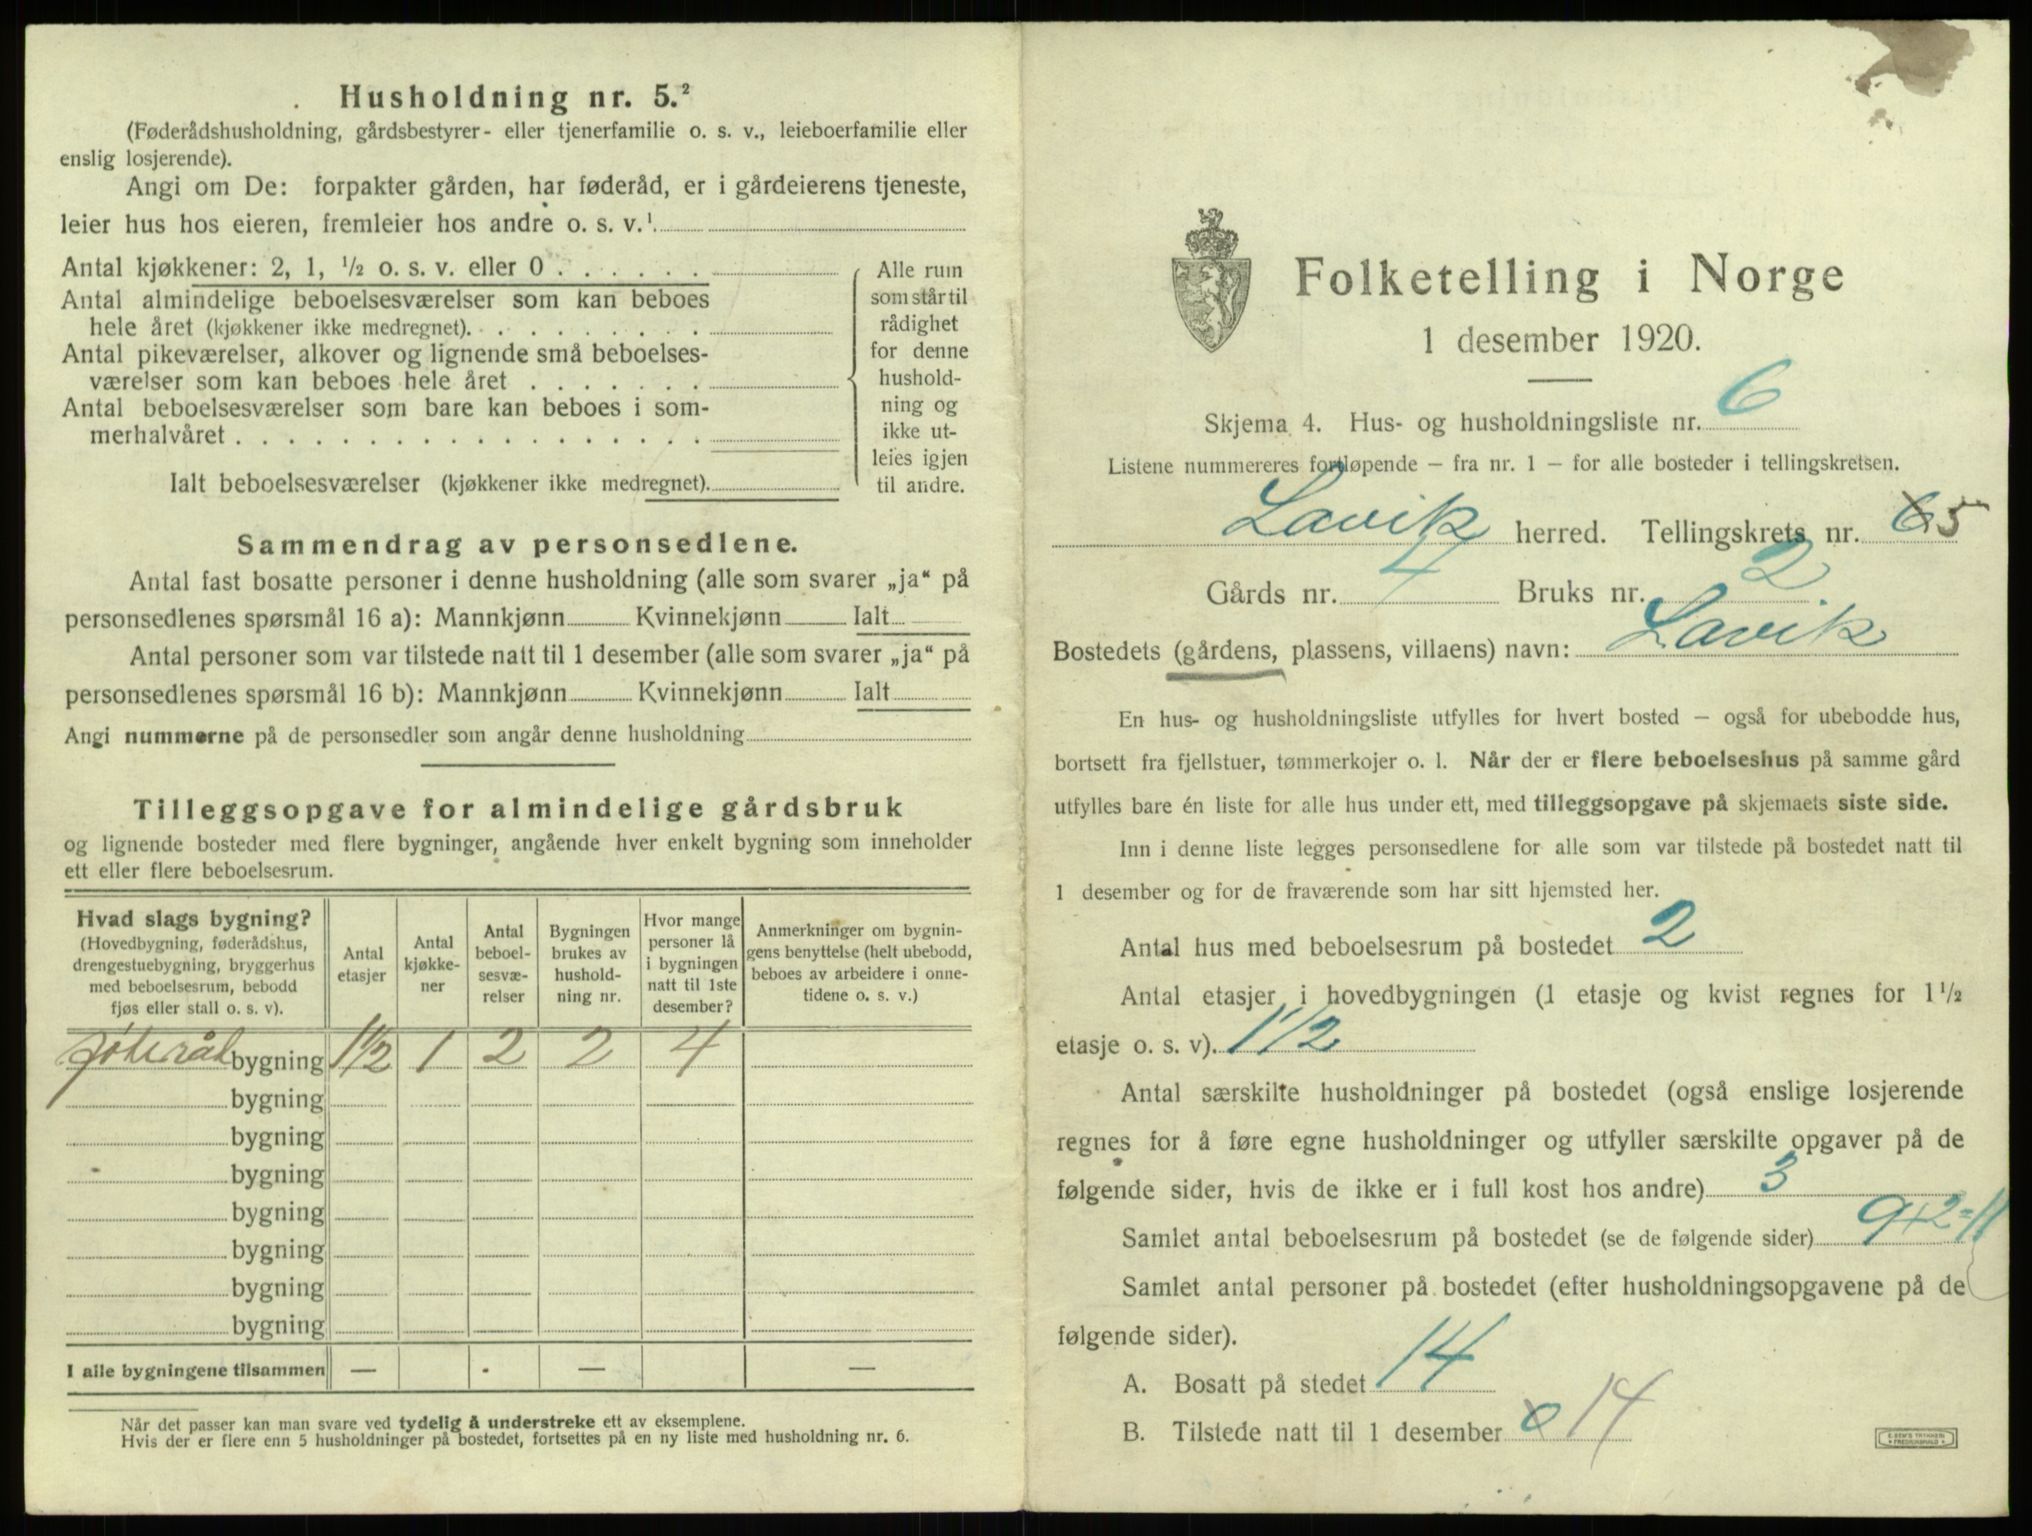 Husholdning nr. 5.²
(Føderådshusholdning, gårdsbestyrer- eller tjenerfamilie o. s. v., leieboerfamilie eller
enslig losjerende).
Angi om De: forpakter gården, har føderåd, er i gårdeierens tjeneste,
leier hus hos eieren, fremleier hos andre o. s. v.¹
Antal kjøkkener: 2, 1, ½ o. s. v. eller 0
Antal almindelige beboelsesværelser som kan beboes
hele året (kjøkkener ikke medregnet).
Antal pikeværelser, alkover og lignende små beboelses-
værelser som kan beboes hele året
Antal beboelsesværelser som bare kan beboes i som-
merhalvåret
Ialt beboelsesværelser (kjøkkener ikke medregnet).
Alle rum
som står til
rådighet
for denne
hushold-
ning og
ikke ut-
leies igjen
til andre.
Sammendrag av personsedlene.
Antal fast bosatte personer i denne husholdning (alle som svarer „ja“ på
personsedlenes spørsmål 16 a): Mannkjønn Kvinnekjønn Ialt
Antal personer som var tilstede natt til 1 desember (alle som svarer „ja“ på
personsedlenes spørsmål 16 b): Mannkjønn Kvinnekjønn Ialt
Angi nummerne på de personsedler som angår denne husholdning
Tilleggsopgave for almindelige gårdsbruk
og lignende bosteder med flere bygninger, angående hver enkelt bygning som inneholder
ett eller flere beboelsesrum.
Hvad slags bygning?
(Hovedbygning, føderådshus,
drengestuebygning, bryggerhus
med beboelsesrum, bebodd
fjøs eller stall o. s. v).
Antal
etasjer
Antal
kjøkke-
ner
Antal
beboel-
sesvæ-
relser
Bygningen
brukes av
hushold-
ning nr.
Hvor mange
personer lå
i bygningen
natt til 1ste
desember?
Anmerkninger om bygnin-
gens benyttelse (helt ubebodd,
beboes av arbeidere i onne-
tidene o. s. v.)
bygning 1½ 1 2 2 4
bygning
bygning
bygning
bygning
bygning
bygning
bygning
I alle bygningene tilsammen — — —
Når det passer kan man svare ved tydelig å understreke ett av eksemplene.
Hvis der er flere enn 5 husholdninger på bostedet, fortsettes på en ny liste med husholdning nr. 6.
Folketelling i Norge
1 desember 1920.
Skjema 4. Hus- og husholdningsliste nr. 6
Listene nummereres fortløpende – fra nr. 1 – for alle bosteder i tellingskretsen.
Lavik herred. Tellingskrets nr. 6 5
Gårds nr. 4 Bruks nr. 2
Bostedets (gårdens, plassens, villaens) navn: Lavik
En hus- og husholdningsliste utfylles for hvert bosted – også for ubebodde hus,
bortsett fra fjellstuer, tømmerkojer o. l. Når der er flere beboelseshus på samme gård
utfylles bare én liste for alle hus under ett, med tilleggsopgave på skjemaets siste side.
Inn i denne liste legges personsedlene for alle som var tilstede på bostedet natt til
1 desember og for de fraværende som har sitt hjemsted her.
Antal hus med beboelsesrum på bostedet 2
Antal etasjer i hovedbygningen (1 etasje og kvist regnes for 1½
etasje o. s. v). 1½
Antal særskilte husholdninger på bostedet (også enslige losjerende
regnes for å føre egne husholdninger og utfyller særskilte opgaver på de
følgende sider, hvis de ikke er i full kost hos andre) 3
Samlet antal beboelsesrum på bostedet (se de følgende sider) 9+2=11
Samlet antal personer på bostedet (efter husholdningsopgavene på de
følgende sider).
A. Bosatt på stedet 14
B. Tilstede natt til 1 desember 0 14